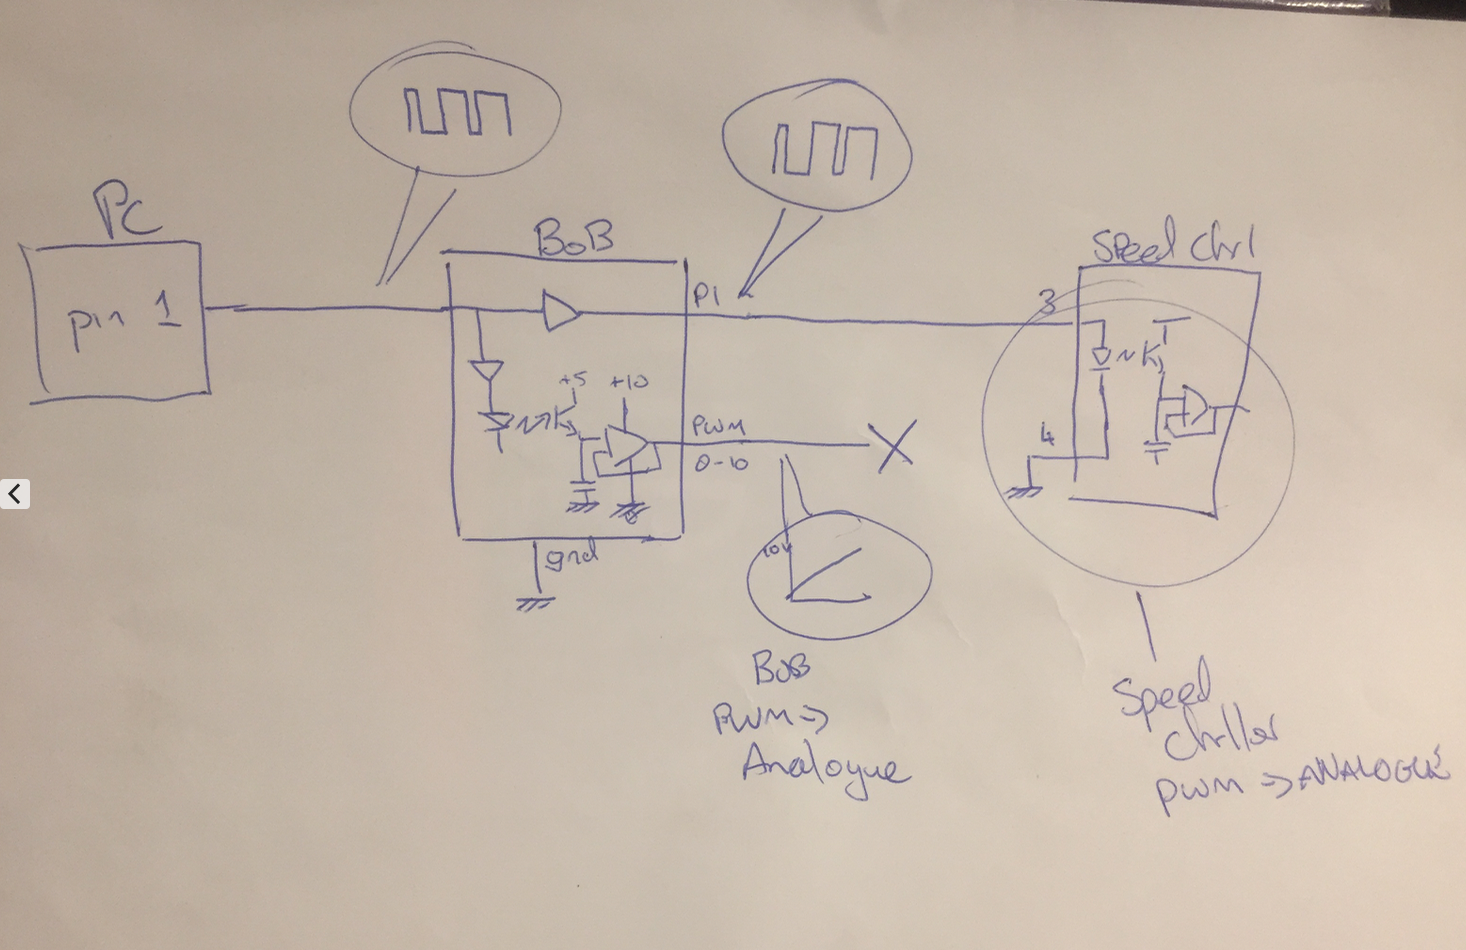 PC
pin 1
BoB
P1
+5
+10
PWM
0-10
gnd
10v
BoB
PWM =>
Analogue
Speed Ctrl
3
4
Speed
Ctrller
PWM => ANALOGUE